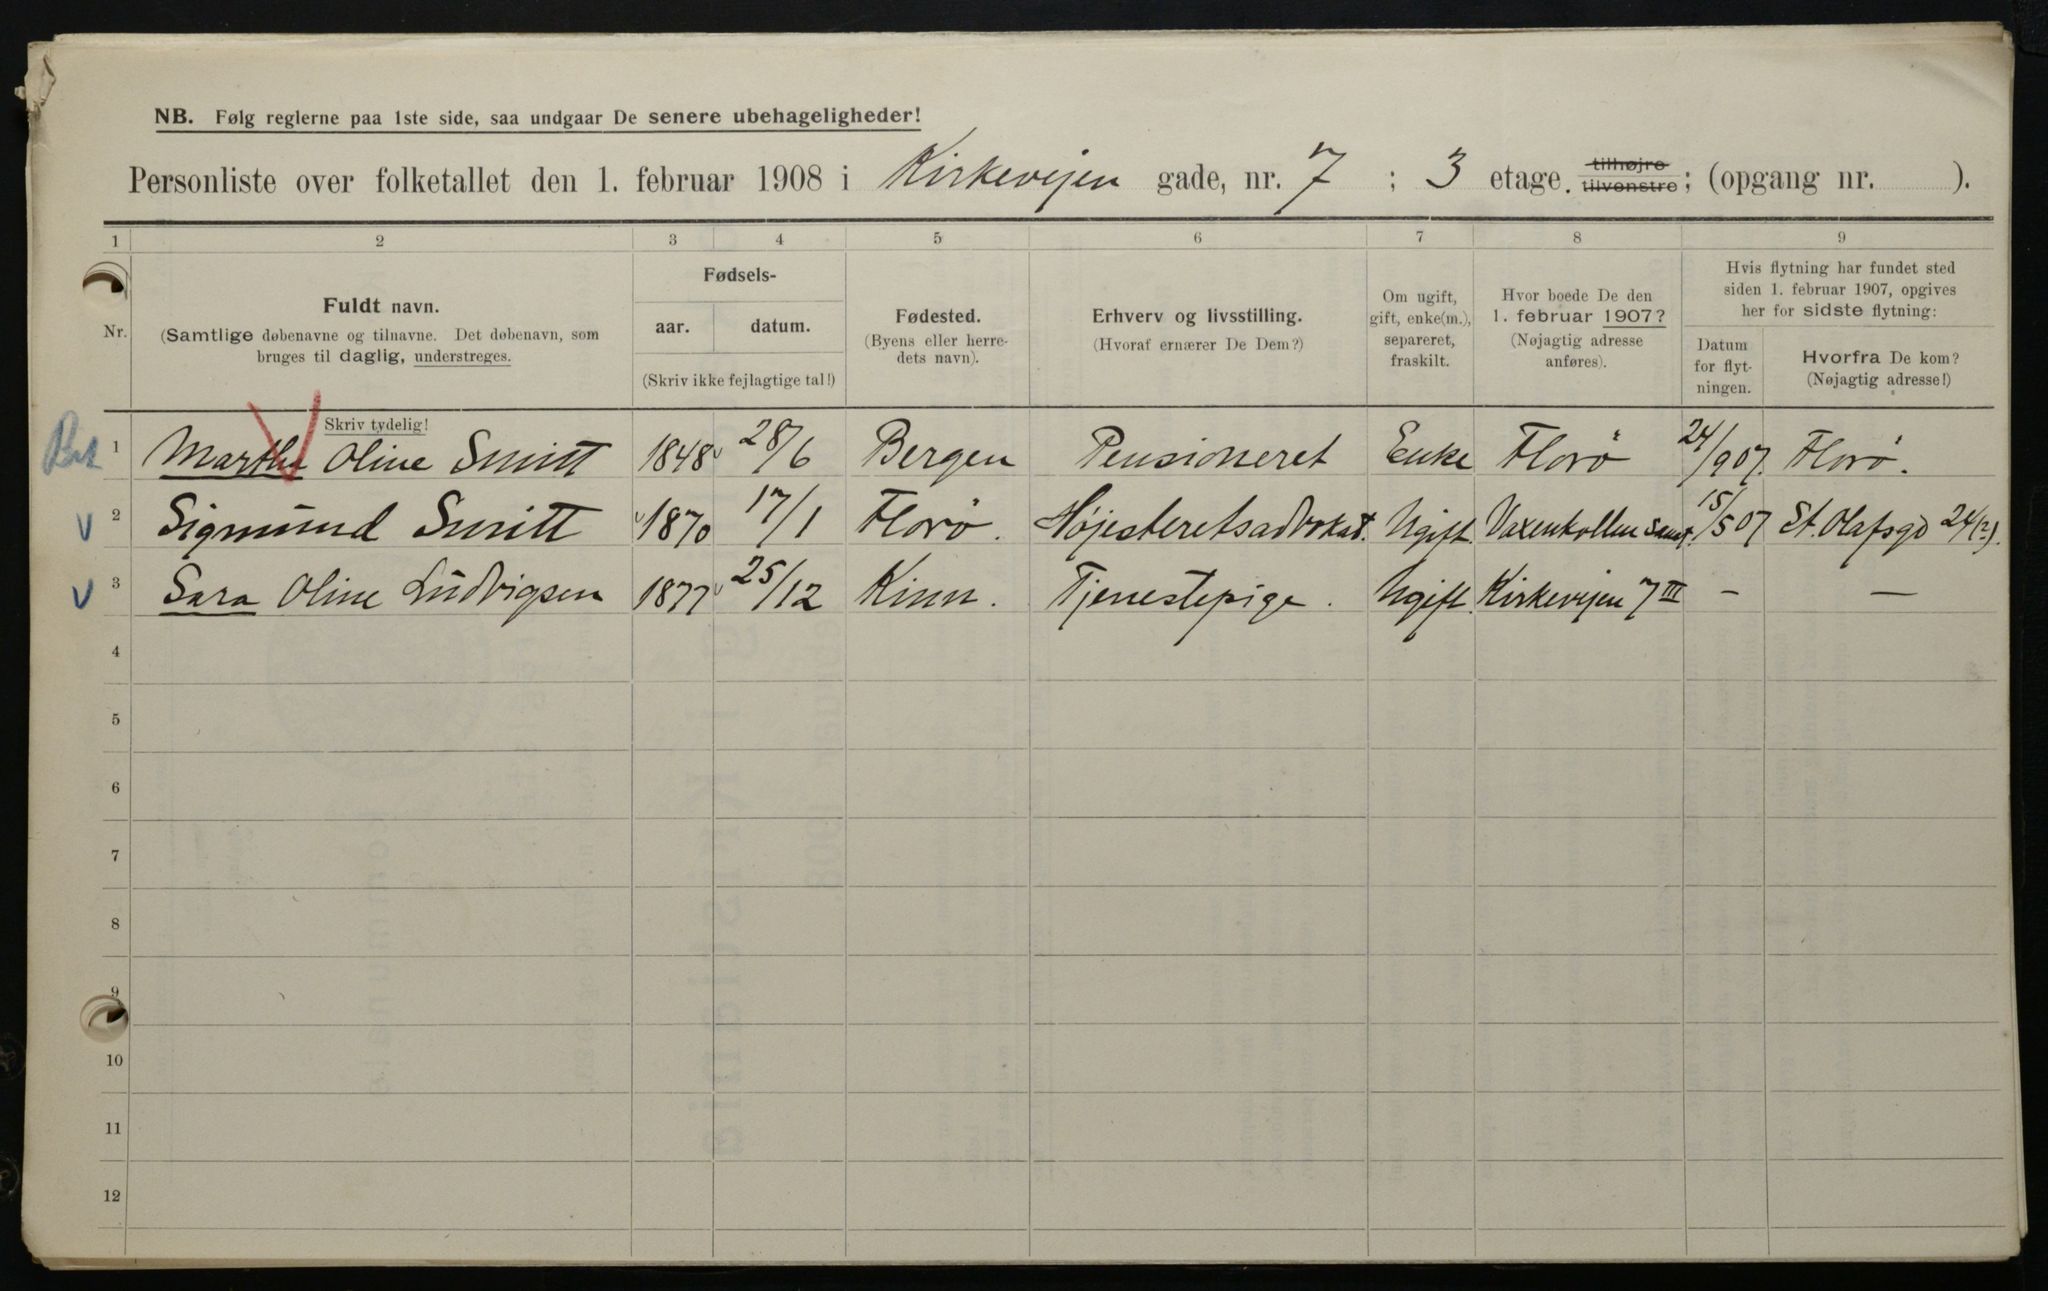 NB. Følg reglerne paa 1ste side, saa undgaar De senere ubehageligheder!
Personliste over folketallet den 1. februar 1908 i Kirkevejen gade, nr. 7 ; 3 etage. tilhøjre tilvenstre; (opgang nr. ).
1 2 3 4 5 6 7 8 9
Nr.
Fuldt navn.
(Samtlige døbenavne og tilnavne. Det døbenavn, som
bruges til daglig, understreges.
Fødsels-
aar. datum.
(Skriv ikke fejlagtige tal!)
Fødested.
(Byens eller herre-
dets navn).
Erhverv og livsstilling.
(Hvoraf ernærer De Dem?)
Om ugift,
gift, enke(m.),
separeret,
fraskilt.
Hvor boede De den
1. februar 1907?
(Nøjagtig adresse
anføres).
Hvis flytning har fundet sted
siden 1. februar 1907, opgives
her for sidste flytning:
Datum
for flyt-
ningen.
Hvorfra De kom?
(Nøjagtig adresse!)
Skriv tydelig!
1 Marthe Oline Smitt 1848 28/6 Bergen Pensioneret Enke Florö 24/9 07. Florö.
2 Sigmund Smitt 1870 17/1 Florö. Højesteretsadvokat. Ugift. Voxenkollen sanat. 15/5 07 St. Olafsgd 24 (?).
3 Sara Oline Ludvigsen 1877 25/12 Kinn. Tjenestepige. Ugift. Kirkevejen 7 III – –
4
5
6
7
8
9
10
11
12